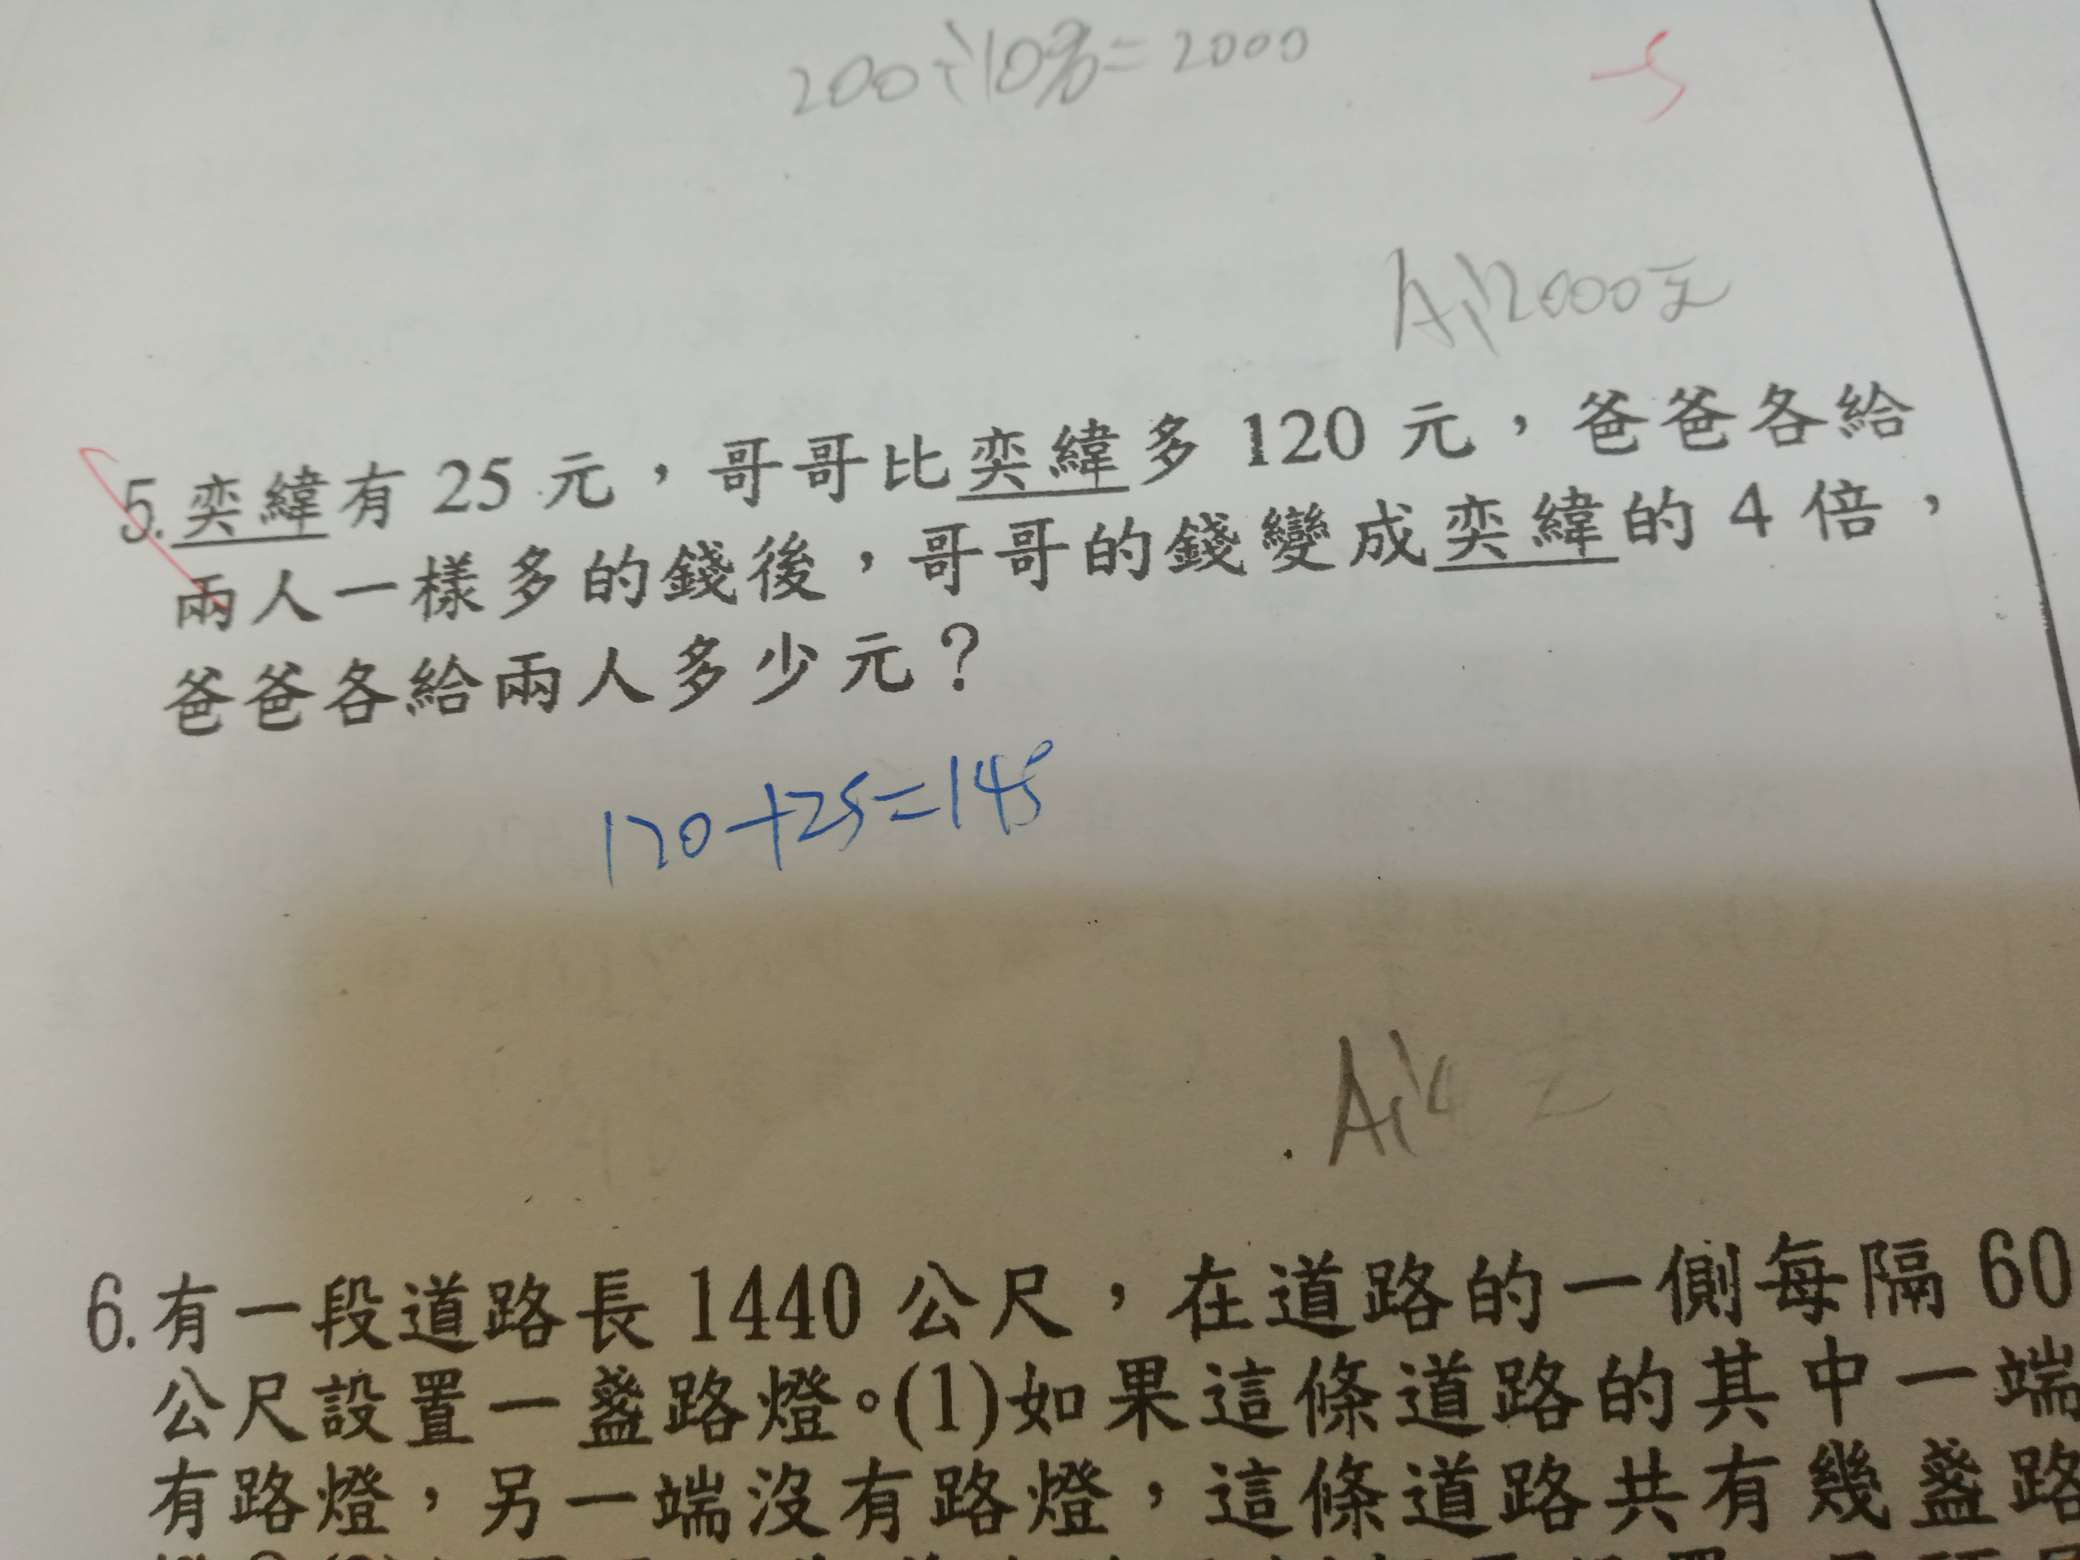 200÷10%=2000
-5
A:2000元
5.奕緯有 25 元，哥哥比奕緯多 120 元，爸爸各給
兩人一樣多的錢後，哥哥的錢變成奕緯的 4 倍，
爸爸各給兩人多少元？
120+25=145
A:
6.有一段道路長 1440 公尺，在道路的一側每隔 60
公尺設置一盞路燈。(1)如果這條道路的其中一端
有路燈，另一端沒有路燈，這條道路共有幾盞路